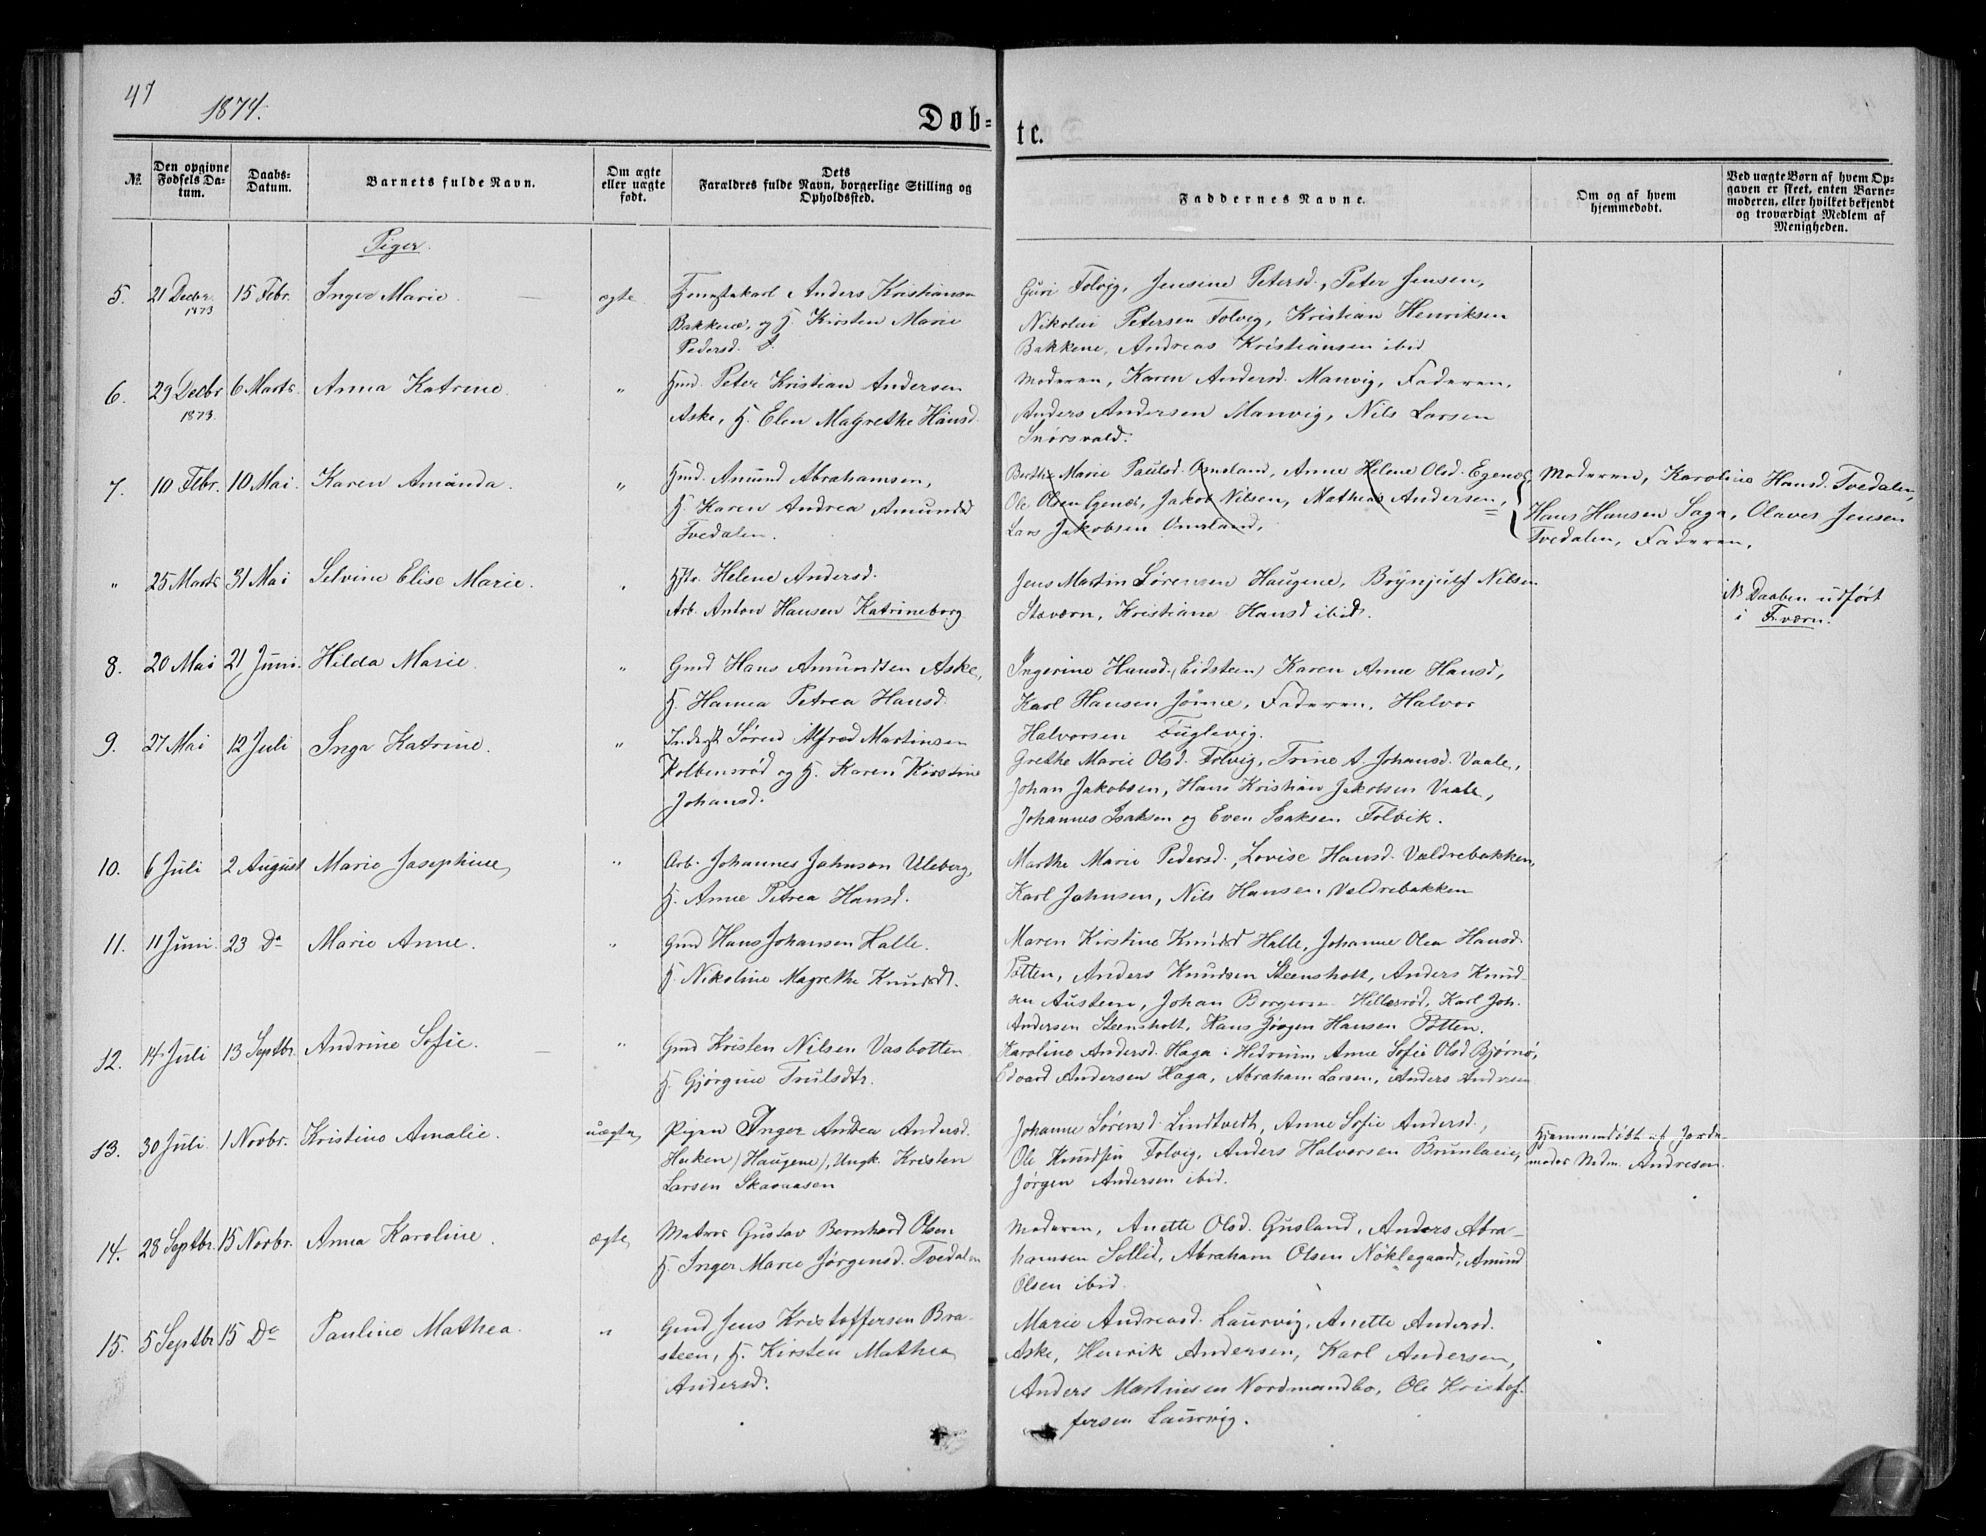 47
1874.
Døb-
te.
№
Den opgivne
Fødsels Da-
tum.
Daabs-
Datum.
Barnets fulde Navn.
Om ægte
eller uægte
født.
Dets
Forældres fulde Navn, borgerlige Stilling og
Opholdssted.
Faddernes Navne.
Om og af hvem
hjemmedøbt.
Ved uægte Børn af hvem Op-
gaven er skeet, enten Barne-
moderen, eller hvilket bekjendt
og troværdigt Medlem af
Menigheden.
Piger.
5. 21 Decbr. 1873 15 Febr. Inger Marie. ægte
Anders Kristiansen
Bakkene, og H. Kirsten Marie
Pedersd.
Guri Folvig, Jensine Petersd., Peter Jensen,
Nikolai Petersen Folvig, Kristian Henriksen
Bakkene, Andreas Kristiansen ibid
6. 29 Decbr 1873. 6 Marts. Anna Katrine. "
Hmd. Peter Kristian Andersen
Aske, H. Elen Magrethe Hansd.
Moderen, Karen Andersd. Manvig, Faderen,
Anders Andersen Manvig, Nils Larsen
7. 10 Febr. 10 Mai. Karen Amanda. "
Hmd. Amund Abrahamsen,
H. Karen Andrea Amundsd
Tvedalen.
Berthe Marie Paulsd. Omsland, Anne Helene Olsd. Egenæs
Ole Olsen Egenæs, Jakob Nilsen, Mathias Andersen,
Lars Jakobsen Omsland,
Moderen, Karoline Hansd. Tvedalen,
Hans Hansen Saga, Olaves Jensen
Tvedalen, Faderen.
" 25 Marts 31 Mai Selvine Elise Marie. "
Helene Andersd.
Arb. Anton Hansen Katrineborg
Jens Martin Sørensen Haugene, Brynjulf Nilsen
Staværn, Kristiane Hansd ibid.
NB Daaben udført
i Fr.værn.
8. 20 Mai 21 Juni. Hilda Marie. "
Gmd Hans Amundsen Aske,
H. Hanna Petrea Hansd.
Ingerine Hansd. (Eidsteen) Karen Anne Hansd,
Karl Hansen Jonne, Faderen, Halvor
Halvorsen Fuglevig.
9. 27 Mai 12 Juli Inga Katrine. "
Inderst Søren Alfred Martinsen
Kolbensrød og H. Karen Kirstine
Johansd.
Grethe Marie Olsd. Folvig, Trine A. Johansd. Vaale,
Johan Jakobsen, Hans Kristian Jakobsen Vaale,
Johannes Isaksen og Even Isaksen Folvik.
10. 6 Juli 2 August Marie Josephine "
Arb. Johannes Johnson Uleberg,
H. Anne Petrea Hansd.
Marthe Marie Pedersd., Lovise Hansd. Valdrebakken,
Karl Johnsen, Nils Hansen Valdrebakken
11. 11 Juni. 23 Do Marie Anne. "
Gmd Hans Johansen Halle.
H. Nikoline Magrethe Knudsdt.
Maren Kirstine Knudsd Halle, Johanne Olea Hansd.
Potten, Anders Knudsen Steensholt, Anders Knud-
sen Austein, Johan Borgersen Hillesrød, Karl Joh.
Andersen Steensholt, Hans Jørgen Hansen Potten.
12. 14 Juli 13 Septbr. Andrine Sofie. "
Gmd Kristen Nilsen Vasbotten
H. Gjørgine Trulsdtr.
Karoline Andersd. Haga i Hedrum, Anne Sofie Olsd Bjørnø,
Edvard Andersen Haga, Abraham Larsen, Anders Andersen
13. 30 Juli. 1 Novbr. Kristine Amalie. uægte
Pigen Inger Andrea Andersd.
Haken (Haugene), Ungk. Kristen
Larsen Skaraasen
Johanne Sørensd. Lindtvedt, Anne Sofie Andersd.,
Ole Knudsen Folvig, Anders Halvorsen Brunlanæs,
Jørgen Andersen ibid.
Hjemmedøbt af Jorde-
moder Mdm. Andresen.
14. 28 Septbr. 15 Novbr. Anna Karoline. ægte
Matros Gustav Bernhard Olsen
H. Inger Marie Jørgensd. Tvedalen
Moderen, Anette Olsd. Gusland, Anders Abra-
hamsen Sollid, Abraham Olsen Nøklegaard, Amund
Olsen ibid.
15. 5 Septbr 15 Do Pauline Mathea. "
Gmd Jens Kristoffersen Bra-
steen, H. Kirsten Mathea
Andersd.
Marie Andreasd. Laurvig, Anette Andersd.
Aske, Henrik Andersen, Karl Andersen,
Anders Martinsen Nordmandbo, Ole Kristof-
fersen Laurvig.